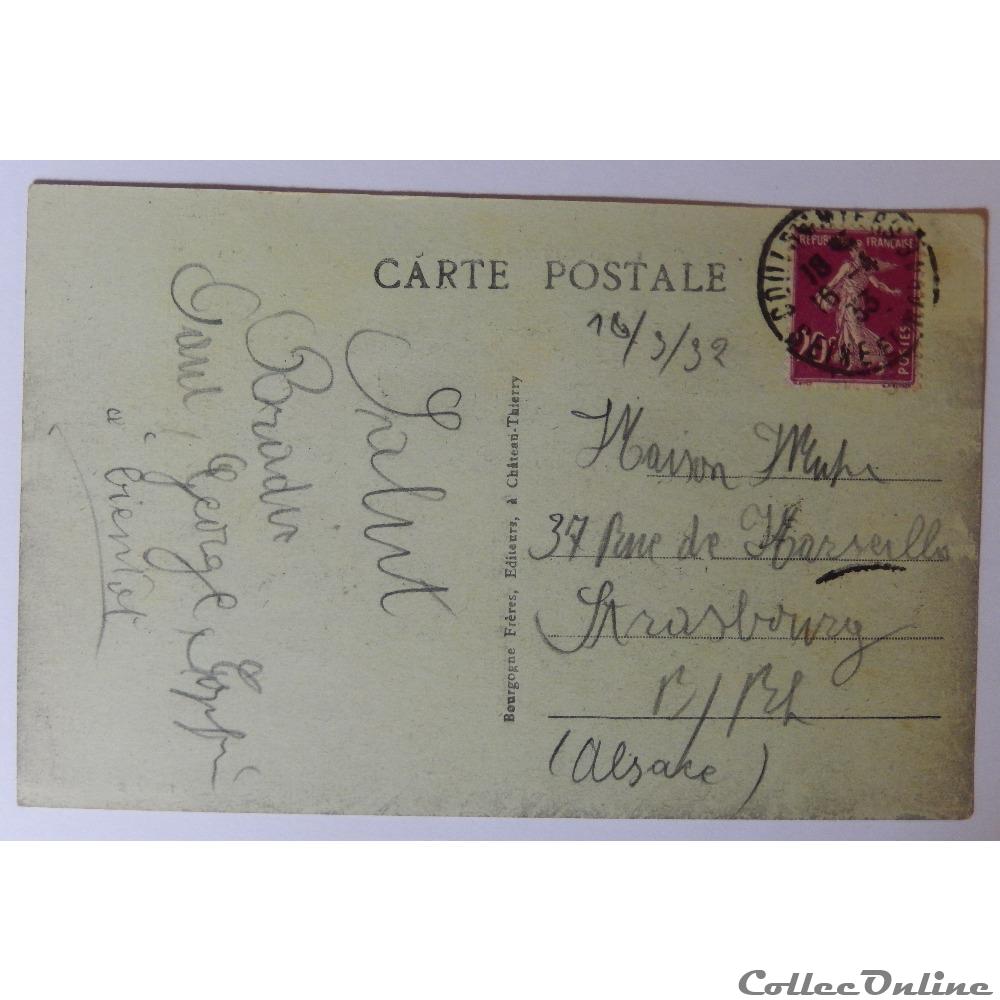 CARTE POSTALE
16/3/32
RÉPUBLIQUE FRANÇAISE
POSTES
Maison
37 Rue de Marseille
Strasbourg
B/Rh
(Alsace)
Bourgogne Frères, Editeurs, à Château-Thierry
Salut
Paul, George,
a bientot
CollecOnline